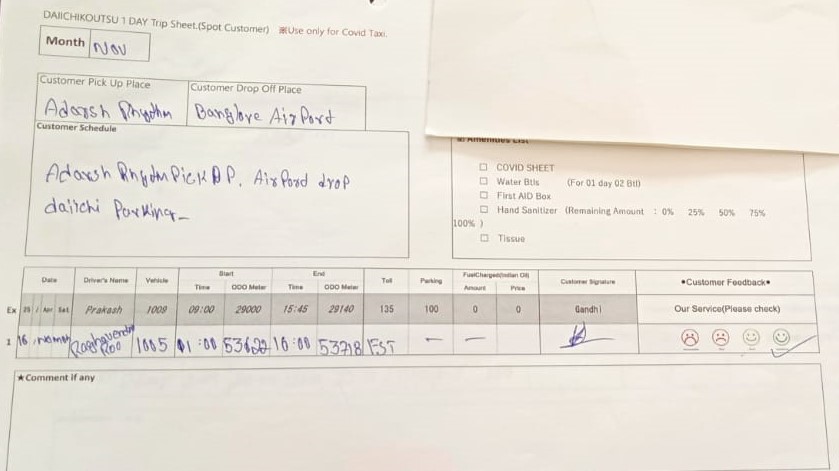 DAIICHIKOUTSU 1 DAY Trip Sheet.(Spot Customer) ※Use only for Covid Taxi.
Month Nov
Customer Pick Up Place Customer Drop Off Place
Adarsh Rhythm Banglore Air Pord
Customer Schedule
Adarsh Rhydm Pick UP. Air Pord drop
daiichi Parking-
※. Amenities List
☐ COVID SHEET
☐ Water Btls (For 01 day 02 Btl)
☐ First AID Box
☐ Hand Sanitizer (Remaining Amount : 0% 25% 50% 75%
100% )
☐ Tissue
Date Driver's Name Vehicle Start End Toll Parking FuelCharged(Indian Oil) Customer Signature •Customer Feedback•
Time ODO Meter Time ODO Meter Amount Price
Ex 25 / Apr Sat Prakash 1009 09:00 29000 15:45 29140 135 100 0 0 Gandhi Our Service(Please check)
1 16 Raghavendra Rao 1005 :00 53622 16:00 53718 EST — —
★Comment if any